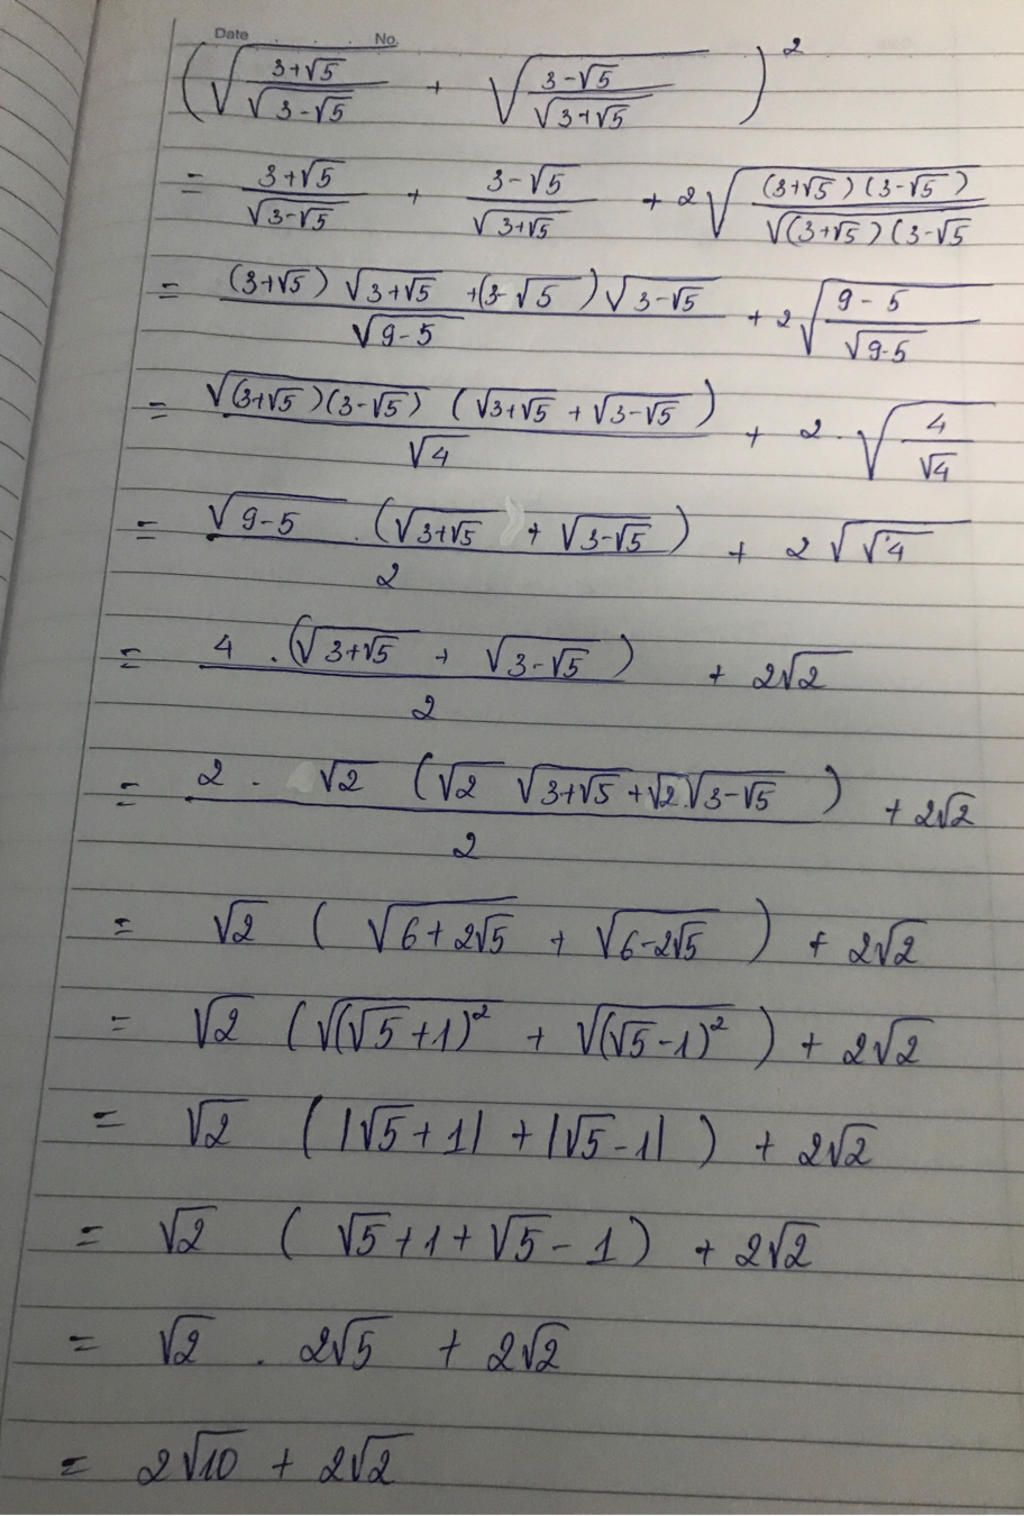 Date No.
(√((3+√5)/√(3-√5)) + √((3-√5)/√(3+√5)))²
= (3+√5)/√(3-√5) + (3-√5)/√(3+√5) + 2√((3+√5)(3-√5)/√(3+√5)(3-√5)
= ((3+√5)√(3+√5) + (3-√5)√(3-√5))/√(9-5) + 2√((9-5)/√(9-5))
= (√((3+√5)(3-√5)) (√(3+√5) + √(3-√5)))/√4 + 2.√(4/√4)
= (√(9-5) . (√(3+√5) + √(3-√5)))/2 + 2√√4
= (4 . (√(3+√5) + √(3-√5)))/2 + 2√2
= (2 . √2 (√2 √(3+√5) + √2.√(3-√5)))/2 + 2√2
= √2 (√(6+2√5) + √(6-2√5)) + 2√2
= √2 (√(√5+1)² + √(√5-1)²) + 2√2
= √2 (|√5+1| + |√5-1|) + 2√2
= √2 (√5+1+√5-1) + 2√2
= √2 . 2√5 + 2√2
= 2√10 + 2√2